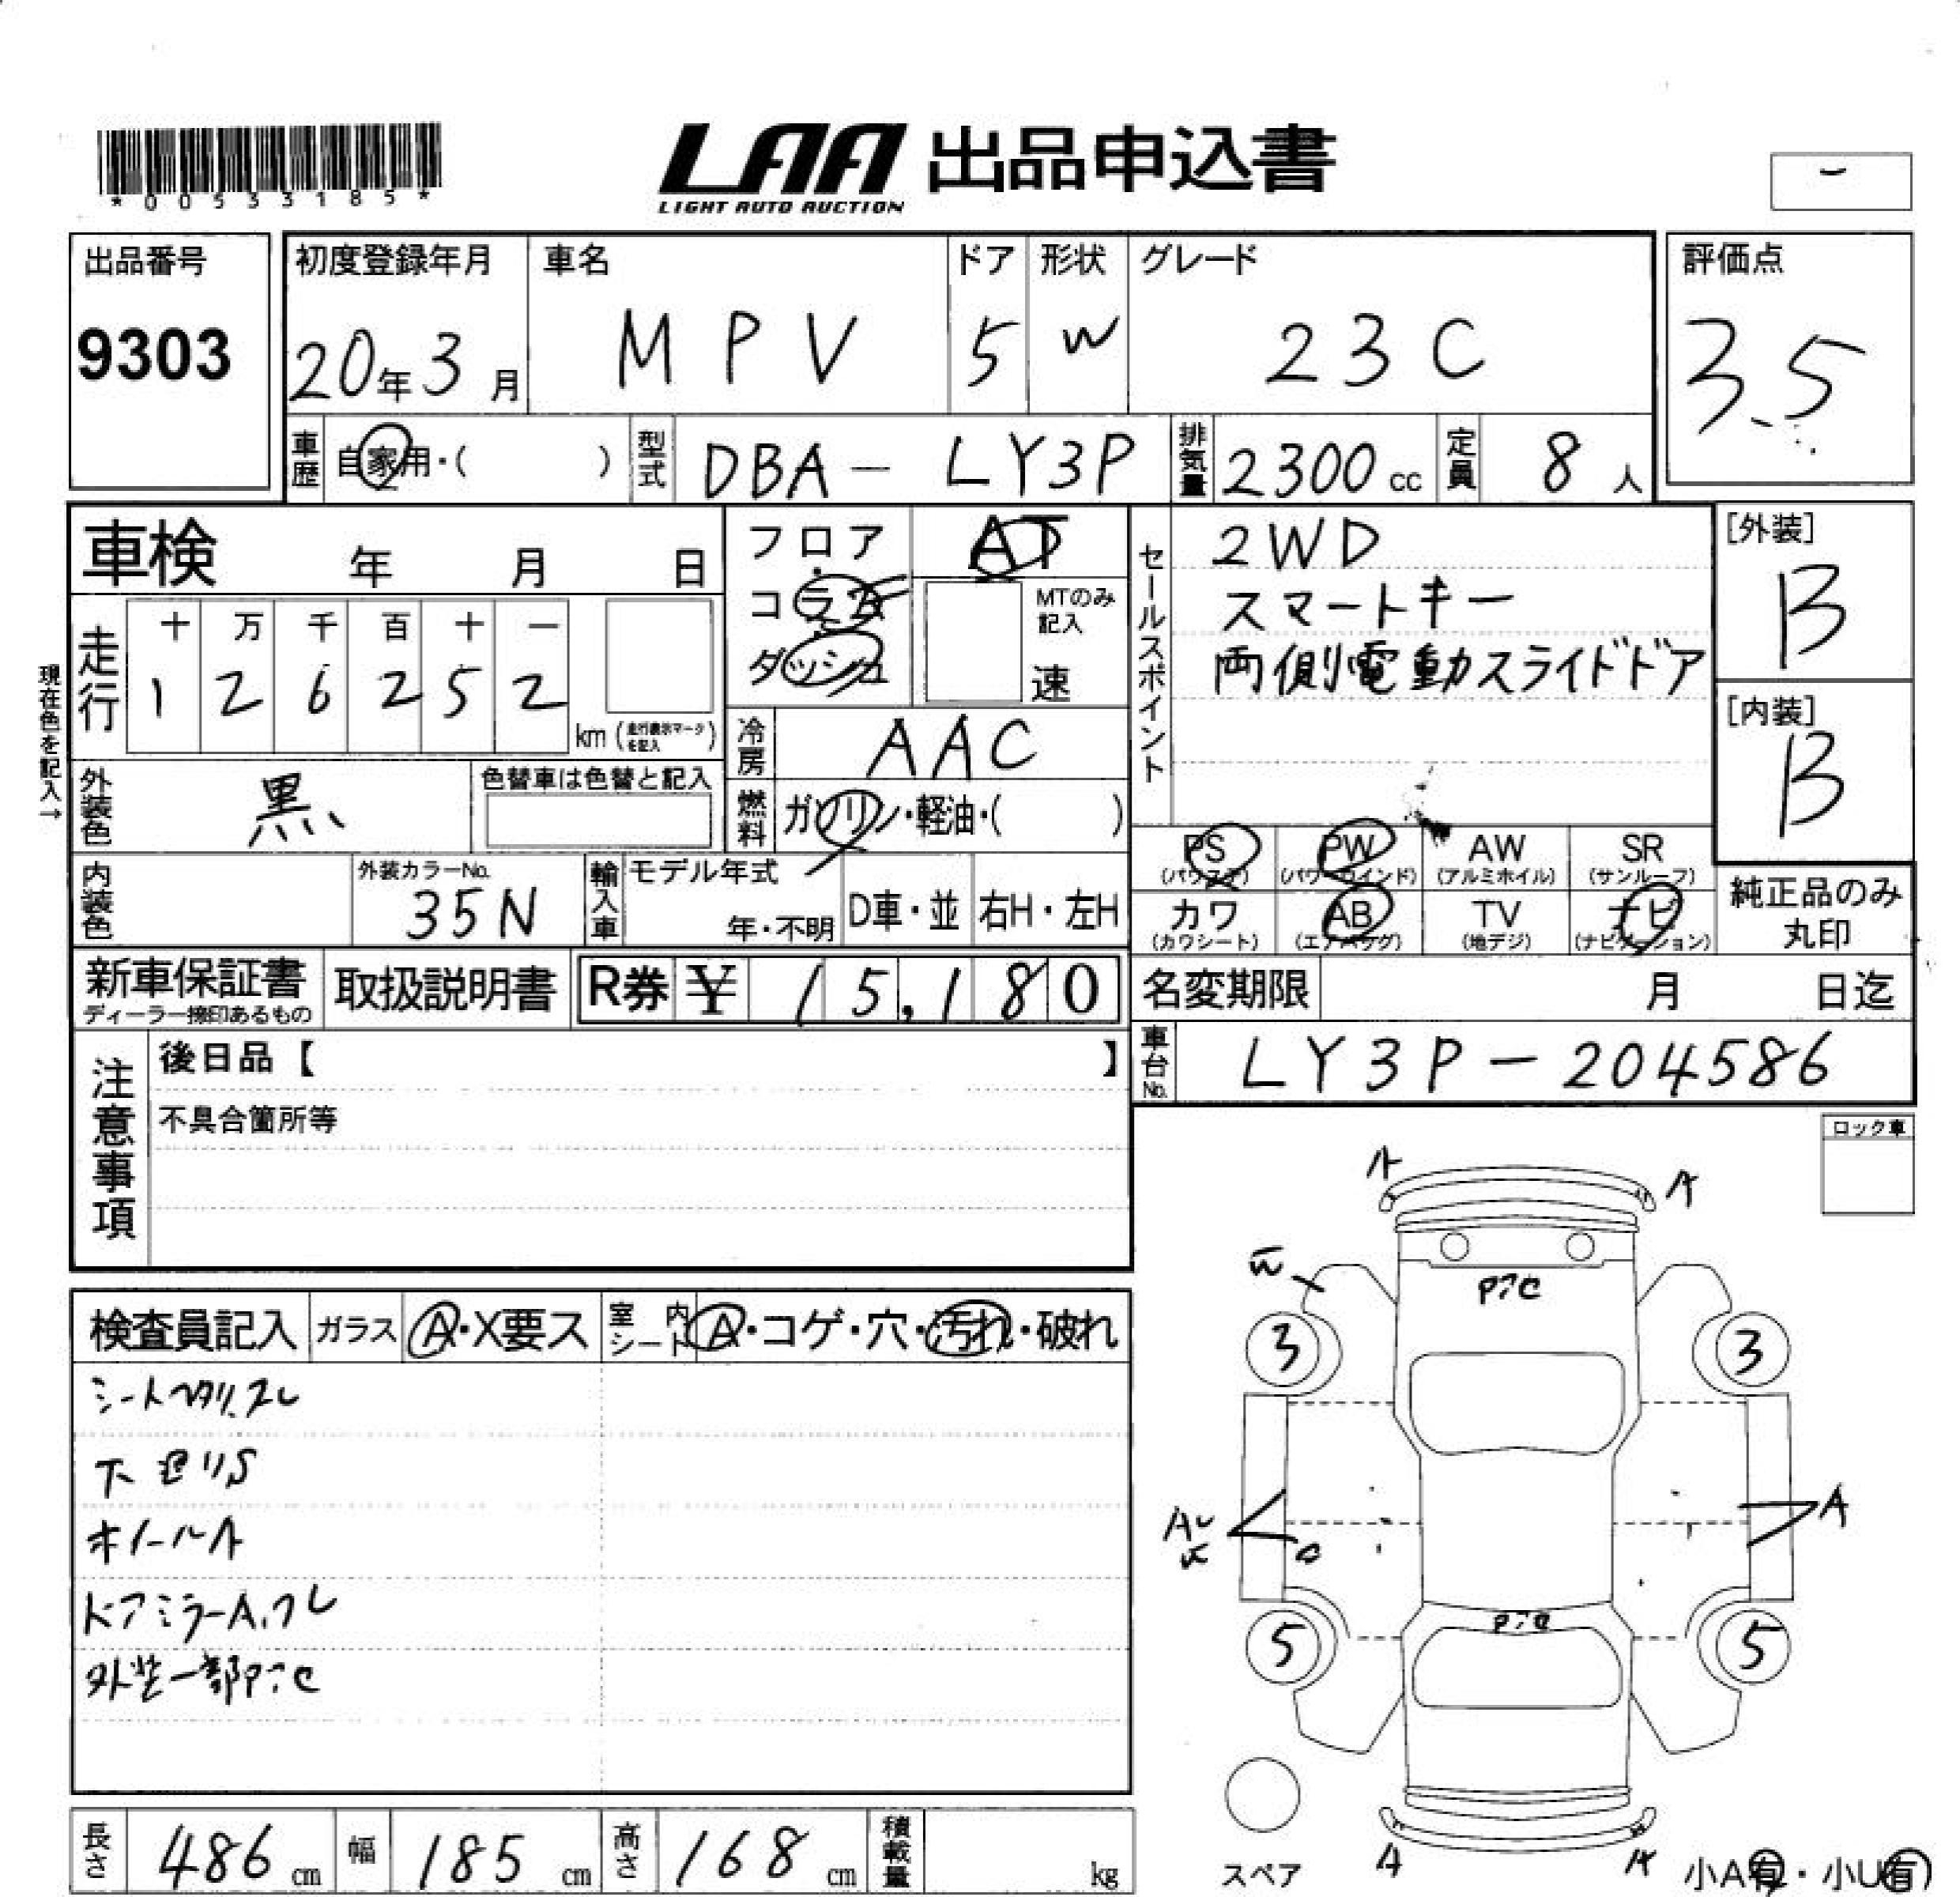 *00533185*
LAA 出品申込書
LIGHT AUTO AUCTION
出品番号
9303
初度登録年月 車名 ドア 形状 グレード
20年3月 MPV 5 W 23C
評価点
3.5
車歴 自家用・( ) 型式 DBA-LY3P 排気量 2300cc 定員 8人
車検 年 月 日
フロア・コラム
ダッシュ
AT
MTのみ記入
速
セールスポイント
2WD
スマートキー
両側電動スライドドア
[外装]
B
[内装]
B
現在色を記入→
走行 十 万 千 百 十 一
1 2 6 2 5 2
km (走行表示マークを記入)
冷房 AAC
外装色 黒 色替車は色替と記入
燃料 ガソリン・軽油・( )
内装色 外装カラーNo. 35N
輸入車 モデル年式 年・不明 D車・並 右H・左H
PS (パワステ) PW (パワーウインド) AW (アルミホイル) SR (サンルーフ)
カワ (カワシート) AB (エアバッグ) TV (地デジ) ナビ (ナビゲーション)
純正品のみ
丸印
新車保証書
ディーラー捺印あるもの
取扱説明書 R券 ¥ 15,180
名変期限 月 日迄
車台No. LY3P-204586
注意事項
後日品【 】
不具合箇所等
ロック車
検査員記入 ガラス A・X要ス 室内シート A・コゲ・穴・汚れ・破れ
ホイールA
ドアミラーA
外装一部
A A
3 3
A
5 5
A
スペア
小A有・小U有
長さ 486cm 幅 185cm 高さ 168cm 積載量 kg